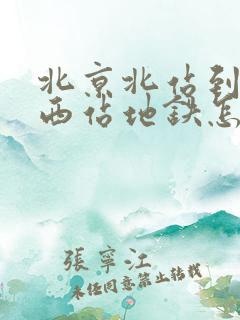 北京北佔到
西佔地鉄怎
張寧江
未经同意禁止转载